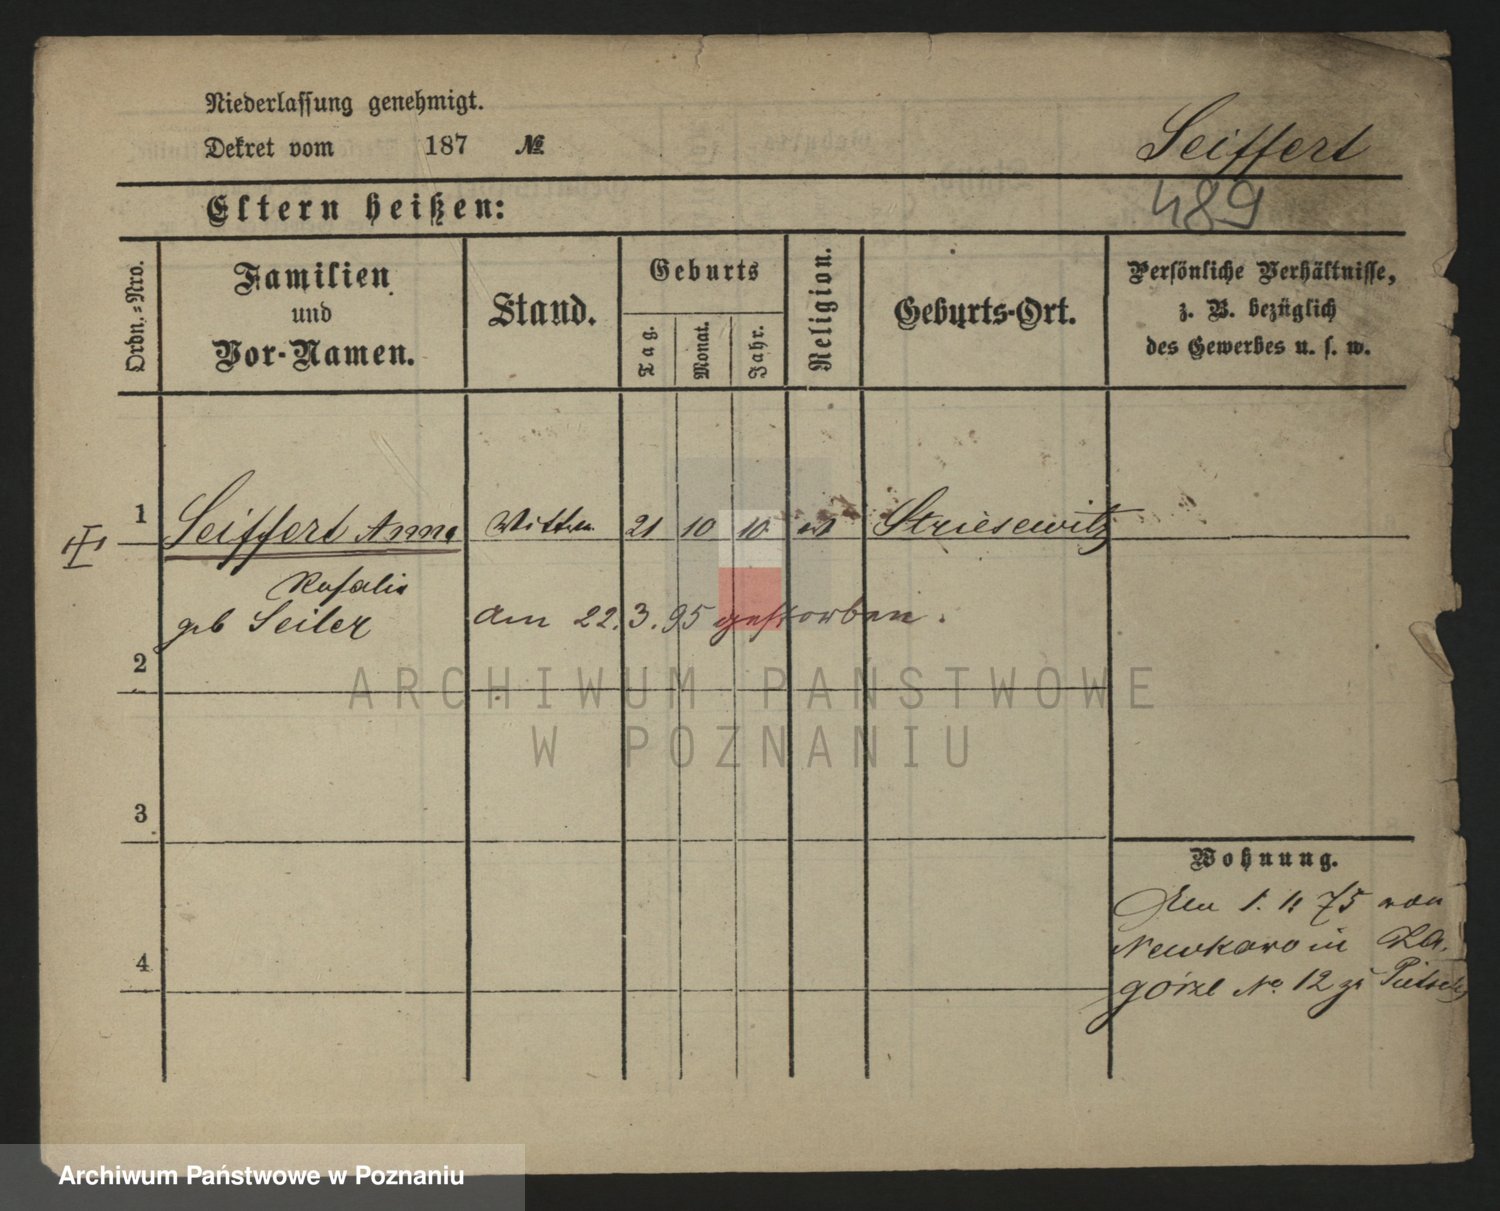 Niederlassung genehmigt.
Dekret vom 187 №
Seiffert
489
Eltern heißen:
Ordn.-Nro.
Familien
und
Vor-Namen.
Stand.
Geburts
Tag.
Monat.
Jahr.
Religion.
Geburts-Ort.
Persönliche Verhältnisse,
z. B. bezüglich
des Gewerbes u. s. w.
1 Seiffert Anna 21 10 10 ev Striesewitz
Rosalie
geb Seiler am 22.3.95 gestorben.
2
ARCHIWUM PAŃSTWOWE
W POZNANIU
3
Wohnung.
1. 11 75 von
4
No 12
Archiwum Państwowe w Poznaniu